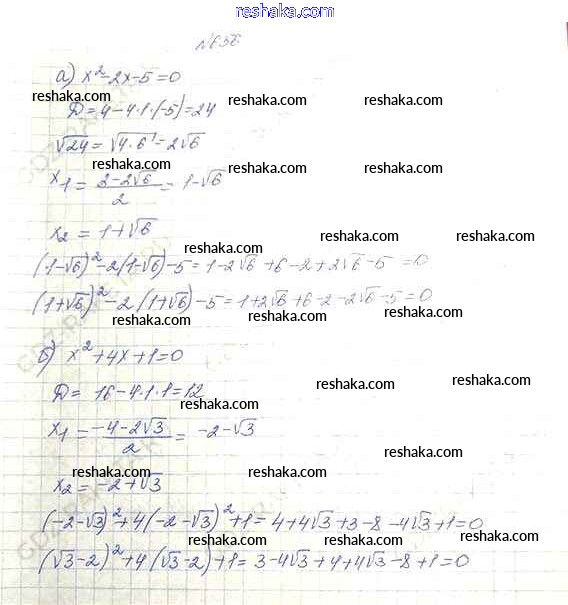 reshaka.com
№656
а) x² - 2x - 5 = 0
reshaka.com reshaka.com reshaka.com
D = 4 - 4·1·(-5) = 24
√24 = √4·6 = 2√6
reshaka.com reshaka.com reshaka.com
x1 = (2 - 2√6)/2 = 1 - √6
x2 = 1 + √6
reshaka.com reshaka.com reshaka.com
(1-√6)² - 2(1-√6) - 5 = 1 - 2√6 + 6 - 2 + 2√6 - 5 = 0
(1+√6)² - 2(1+√6) - 5 = 1 + 2√6 + 6 - 2 - 2√6 - 5 = 0
reshaka.com reshaka.com reshaka.com
б) x² + 4x + 1 = 0
D = 16 - 4·1·1 = 12
reshaka.com reshaka.com reshaka.com
x1 = (-4 - 2√3)/2 = -2 - √3
reshaka.com reshaka.com reshaka.com
x2 = -2 + √3
(-2-√3)² + 4(-2-√3)² + 1 = 4 + 4√3 + 3 - 8 - 4√3 + 1 = 0
reshaka.com reshaka.com reshaka.com
(√3-2)² + 4(√3-2) + 1 = 3 - 4√3 + 4 + 4√3 - 8 + 1 = 0